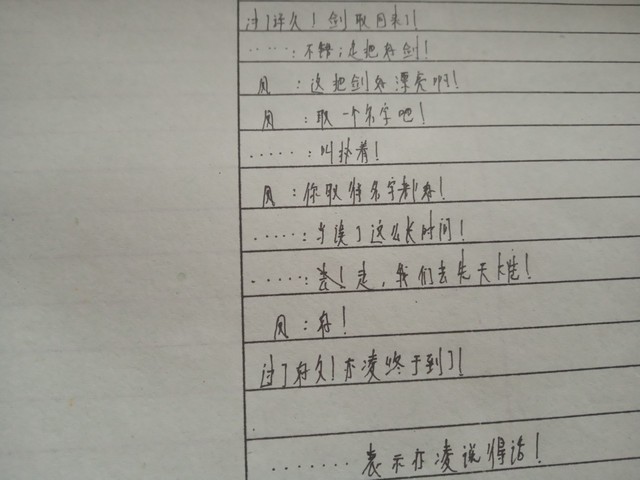 过了许久！剑取回来了！
·····：不错，是把好剑！
凤：这把剑好漂亮啊！
凤：取一个名字吧！
·····：叫执着！
凤：你取得名字都好！
·····：耽误了这么长时间！
·····：走，我们去先天
凤：好！
过了好久！亦凌终于到了！
·······表示亦凌说得话！